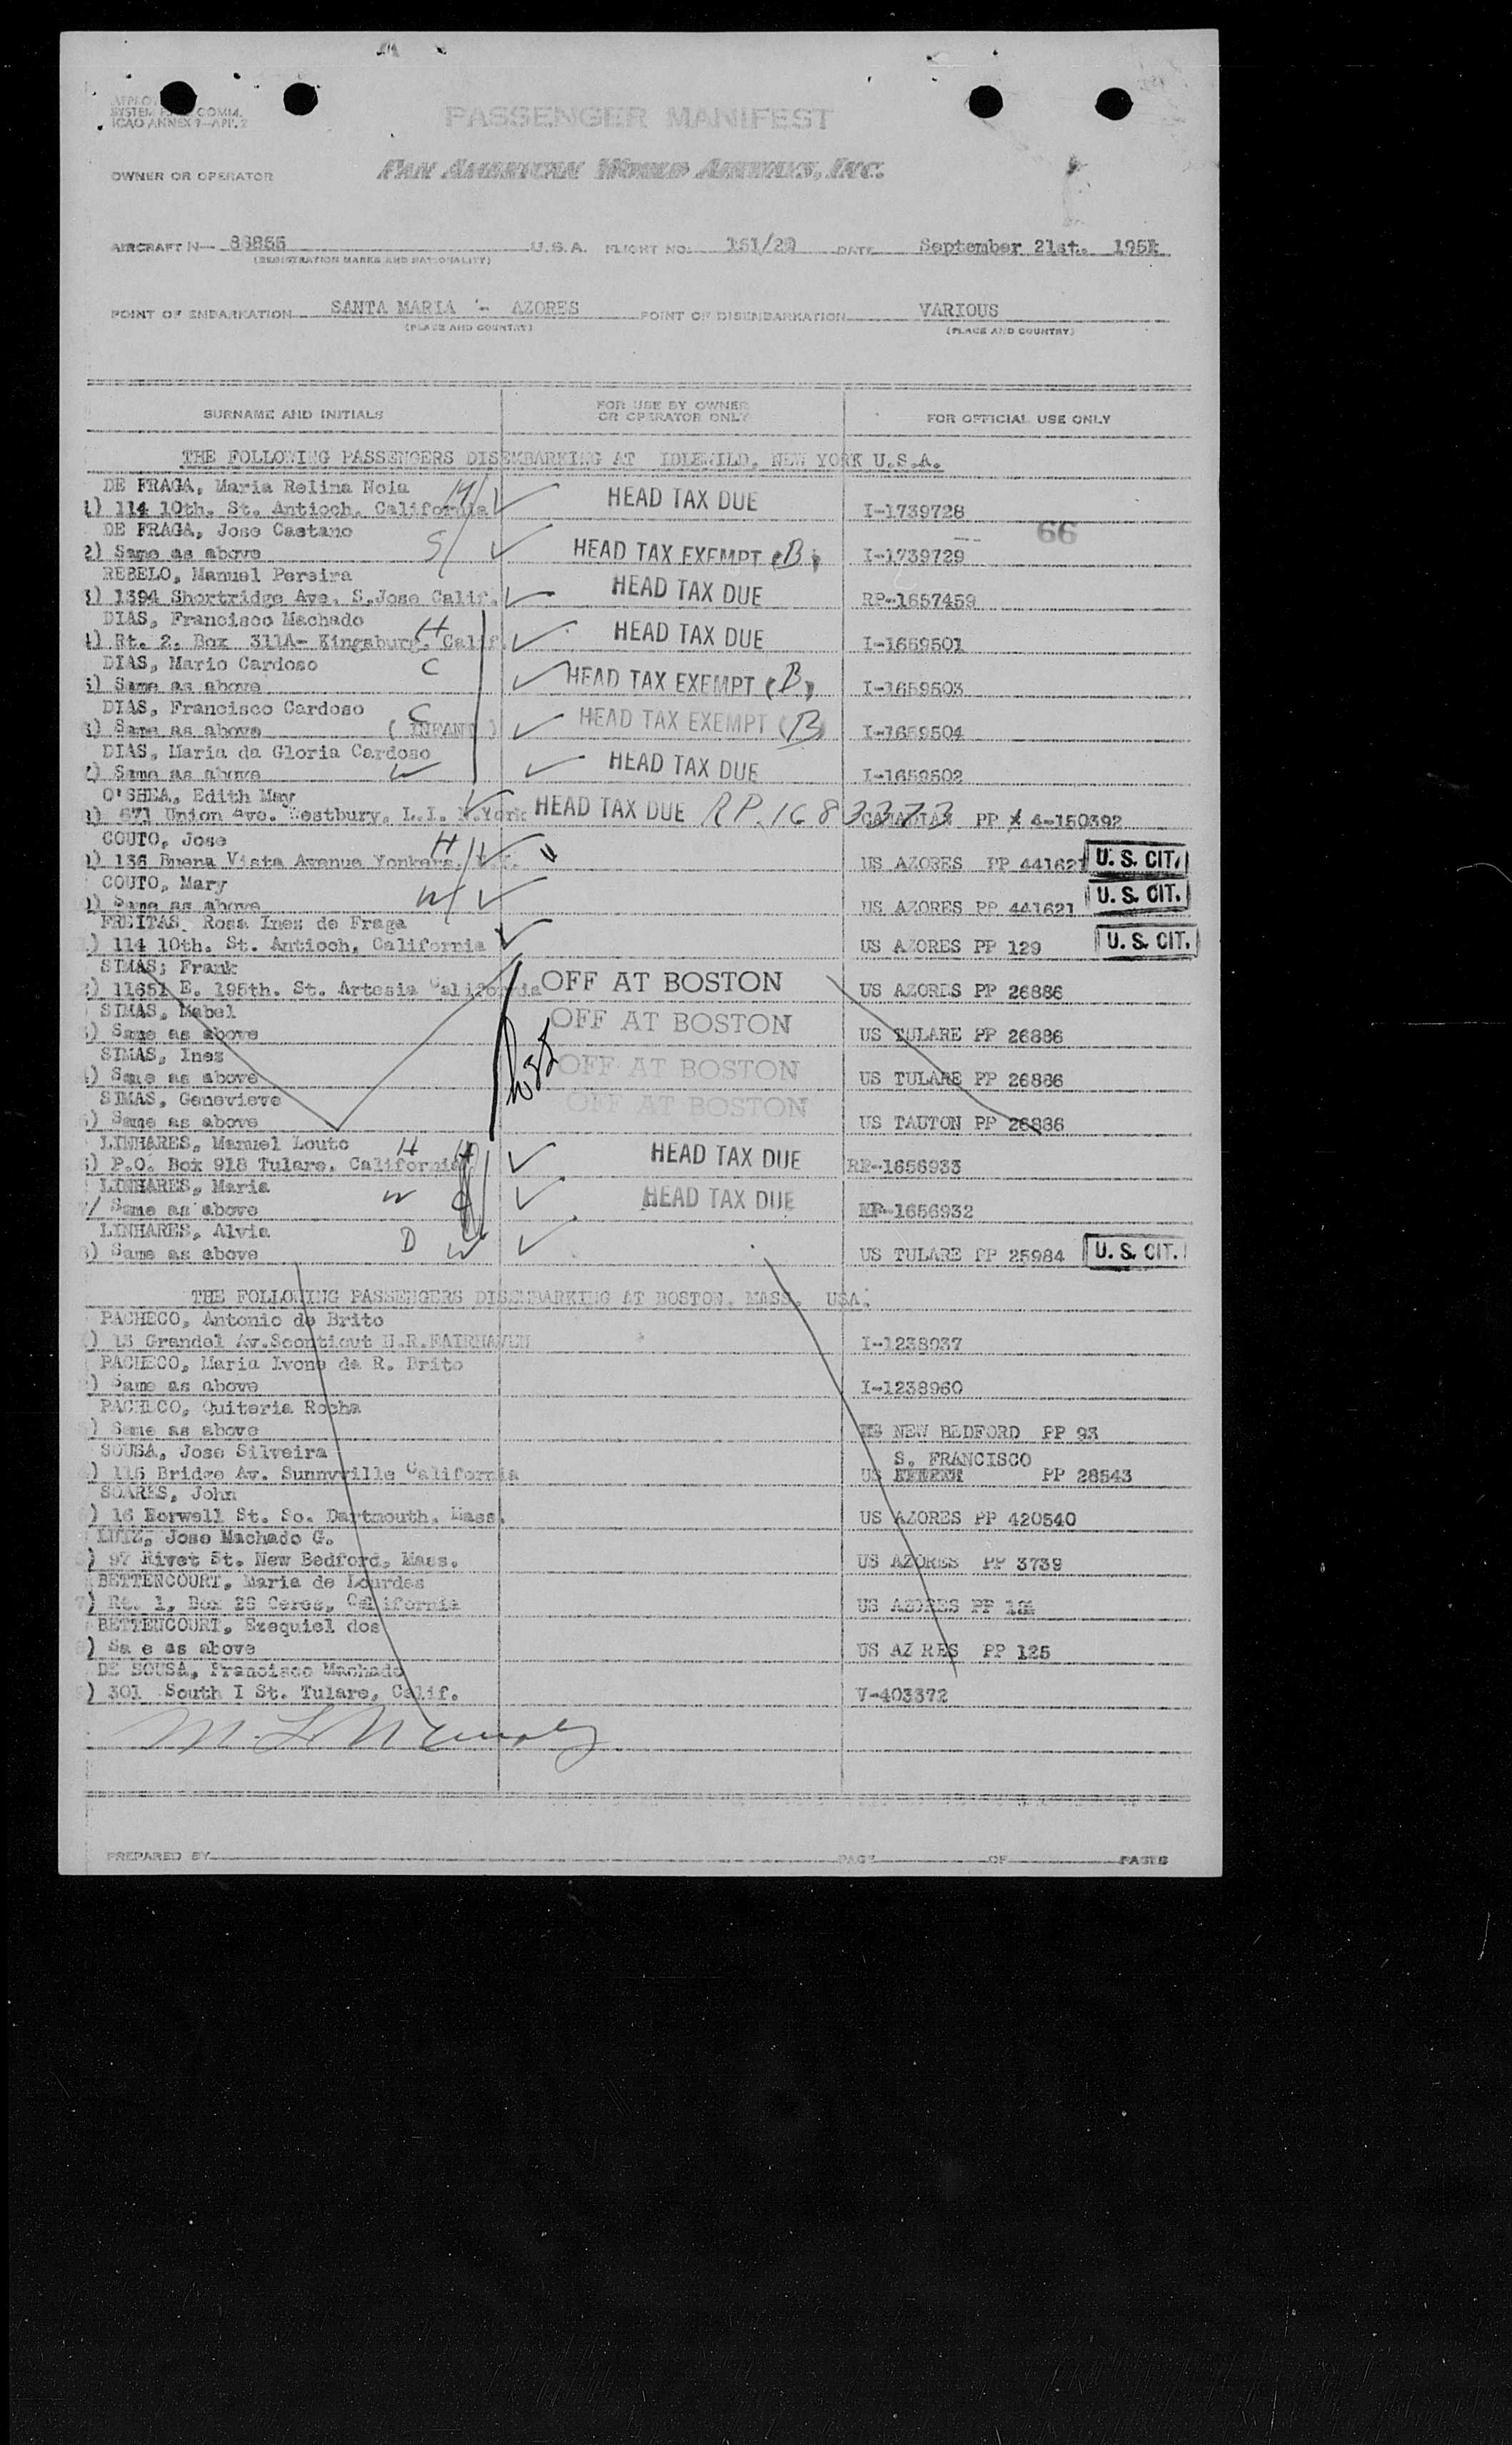 SYSTEM COMM.
ICAO ANNEX 9-APP. 2
PASSENGER MANIFEST
OWNER OR OPERATOR PAN AMERICAN WORLD AIRWAYS, INC.
AIRCRAFT N- 88855 U.S.A. FLIGHT NO. 151/20 DATE September 21st. 1951
(REGISTRATION MARKS AND NATIONALITY)
POINT OF EMBARKATION SANTA MARIA - AZORES POINT OF DISEMBARKATION VARIOUS
(PLACE AND COUNTRY) (PLACE AND COUNTRY)
SURNAME AND INITIALS FOR USE BY OWNER OR OPERATOR ONLY FOR OFFICIAL USE ONLY
THE FOLLOWING PASSENGERS DISEMBARKING AT IDLEWILD, NEW YORK U.S.A.
DE FRAGA, Maria Relina Noia M
1) 114 10th. St. Antioch, California HEAD TAX DUE I-1739728
DE FRAGA, Jose Caetano S 66
2) Same as above HEAD TAX EXEMPT (B) I-1739729
REBELO, Manuel Pereira
3) 1394 Shortridge Ave. S.Jose Calif. HEAD TAX DUE RP-1657459
DIAS, Francisco Machado H
4) Rt. 2, Box 311A- Kingsburg, Calif. HEAD TAX DUE I-1659501
DIAS, Mario Cardoso C
5) Same as above HEAD TAX EXEMPT (B) I-1659503
DIAS, Francisco Cardoso C
6) Same as above ( INFANT ) HEAD TAX EXEMPT (B) I-1659504
DIAS, Maria da Gloria Cardoso
7) Same as above W HEAD TAX DUE I-1659502
O'SHEA, Edith May
8) 671 Union Ave. Westbury, L.I. N.York HEAD TAX DUE RP.1683373 CANADIAN PP 4-150392
COUTO, Jose H
9) 136 Buena Vista Avenue Yonkers, N.Y. " US AZORES PP 441621 U. S. CIT.
COUTO, Mary W
) Same as above US AZORES PP 441621 U. S. CIT.
FREITAS, Rosa Inez de Fraga
) 114 10th. St. Antioch, California US AZORES PP 129 U. S. CIT.
SIMAS; Frank
) 11651 E. 195th. St. Artesia California OFF AT BOSTON US AZORES PP 26886
SIMAS, Mabel
) Same as above OFF AT BOSTON US TULARE PP 26886
SIMAS, Inez
) Same as above OFF AT BOSTON US TULARE PP 26886
SIMAS, Genevieve
) Same as above OFF AT BOSTON US TAUTON PP 26886
LINHARES, Manuel Louto H H
) P.O. Box 918 Tulare, California HEAD TAX DUE RP-1656933
LINHARES, Maria W
/ Same as above HEAD TAX DUE RP-1656932
LINHARES, Alvia D W
) Same as above US TULARE PP 25984 U. S. CIT.
THE FOLLOWING PASSENGERS DISEMBARKING AT BOSTON, MASS. USA.
PACHECO, Antonio de Brito
) 13 Grandel Av.Sconticut N.R.FAIRHAVEN I-1238037
PACHECO, Maria Ivone da R. Brito
) Same as above I-1238960
PACHECO, Quiteria Rocha
) Same as above US NEW BEDFORD PP 93
SOUSA, Jose Silveira S. FRANCISCO
) 116 Bridge Av. Sunnyville California US PP 28543
SOARES, John
) 16 Borwell St. So. Dartmouth, Mass. US AZORES PP 420540
LUIZ, Jose Machado G.
) 97 Rivet St. New Bedford, Mass. US AZORES PP 3739
BETTENCOURT, Maria de Lourdes
7) Rt. 1, Box 26 Ceres, California US AZORES PP
BETTENCOURT, Ezequiel dos
) Sa e as above US AZ RES PP 125
DE SOUSA, Francisco Machado
) 301 South I St. Tulare, Calif. V-403372
PREPARED BY PAGE OF PAGES